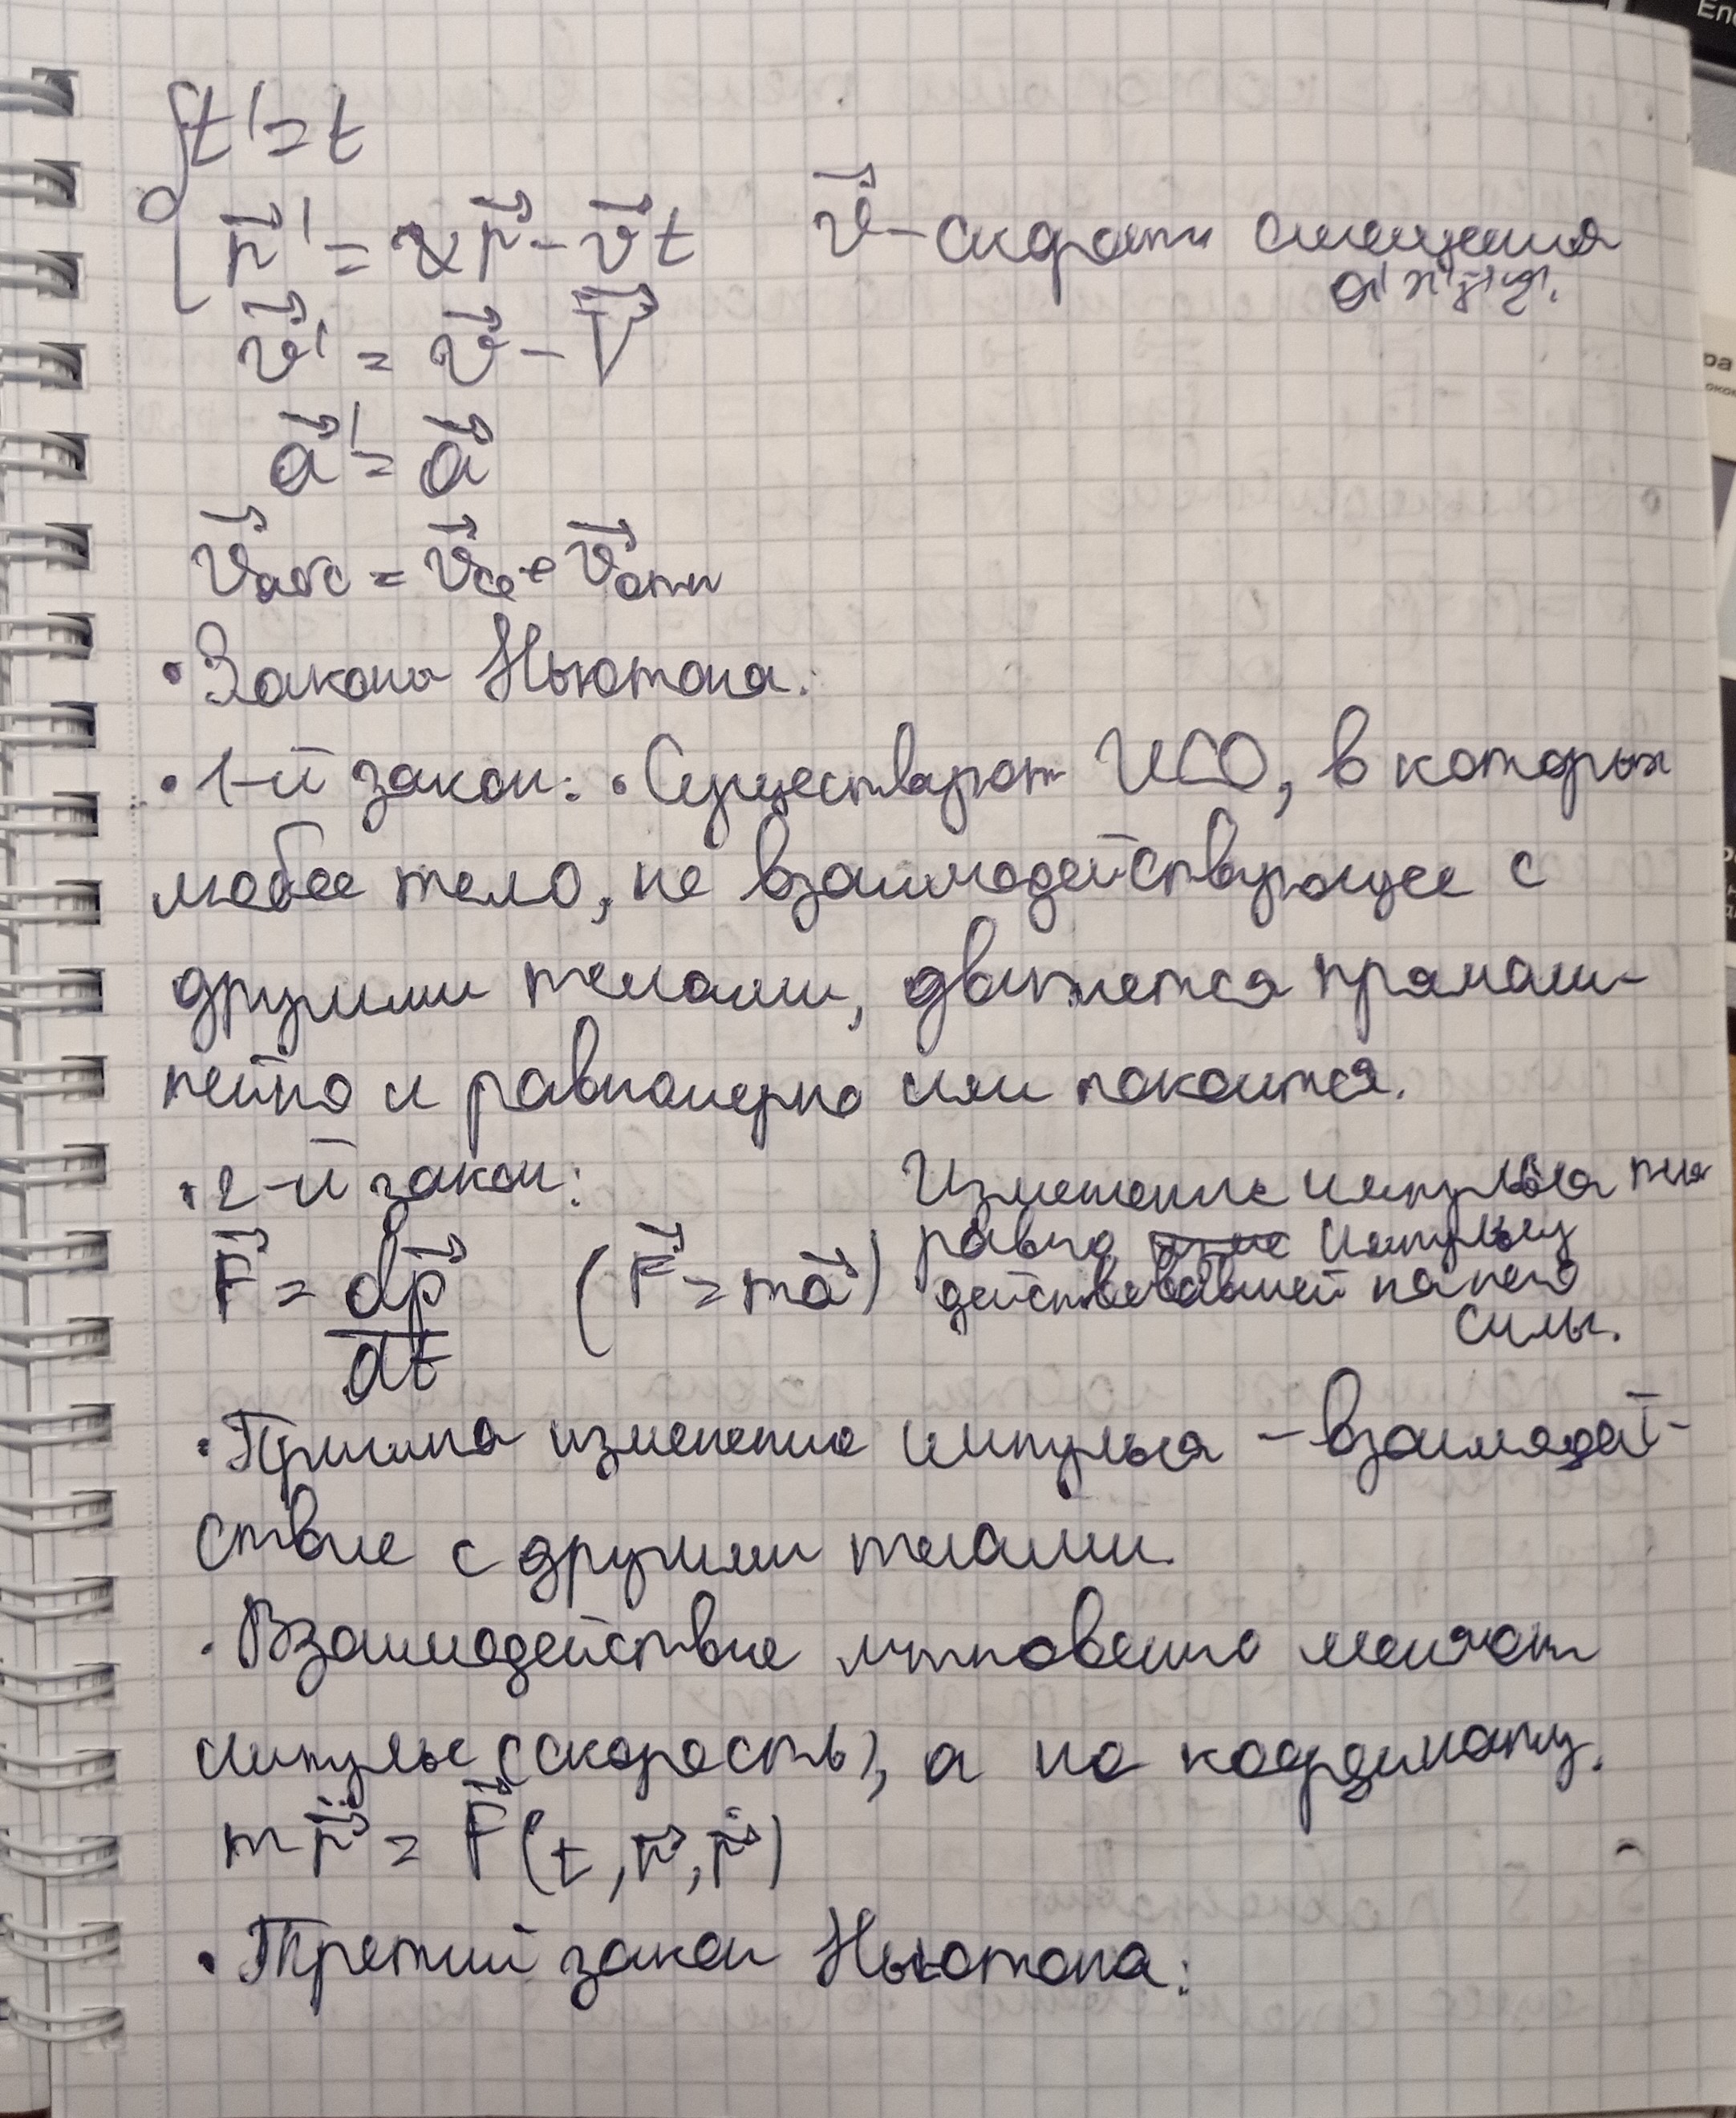 t' = t
r⃗' = r⃗ - v⃗t   v⃗ - скорость смещения
o'x'y'z'.
v⃗' = v⃗ - V⃗
a⃗' = a⃗
v⃗абс = v⃗со + v⃗отн
• Законы Ньютона:
• 1-й закон: • Существуют ИСО, в которых
любое тело, не взаимодействующее с
другими телами, движется прямоли-
нейно и равномерно или покоится.
• 2-й закон: Изменение импульса тела
равно импульсу
F⃗ = dp⃗/dt (F⃗ = ma⃗) действовавшей на него
силы.
• Причина изменения импульса - взаимодей-
ствие с другими телами.
• Взаимодействие мгновенно меняет
импульс (скорость), а не координату.
mr⃗̈ = F⃗(t, r⃗, r⃗̇)
• Третий закон Ньютона: